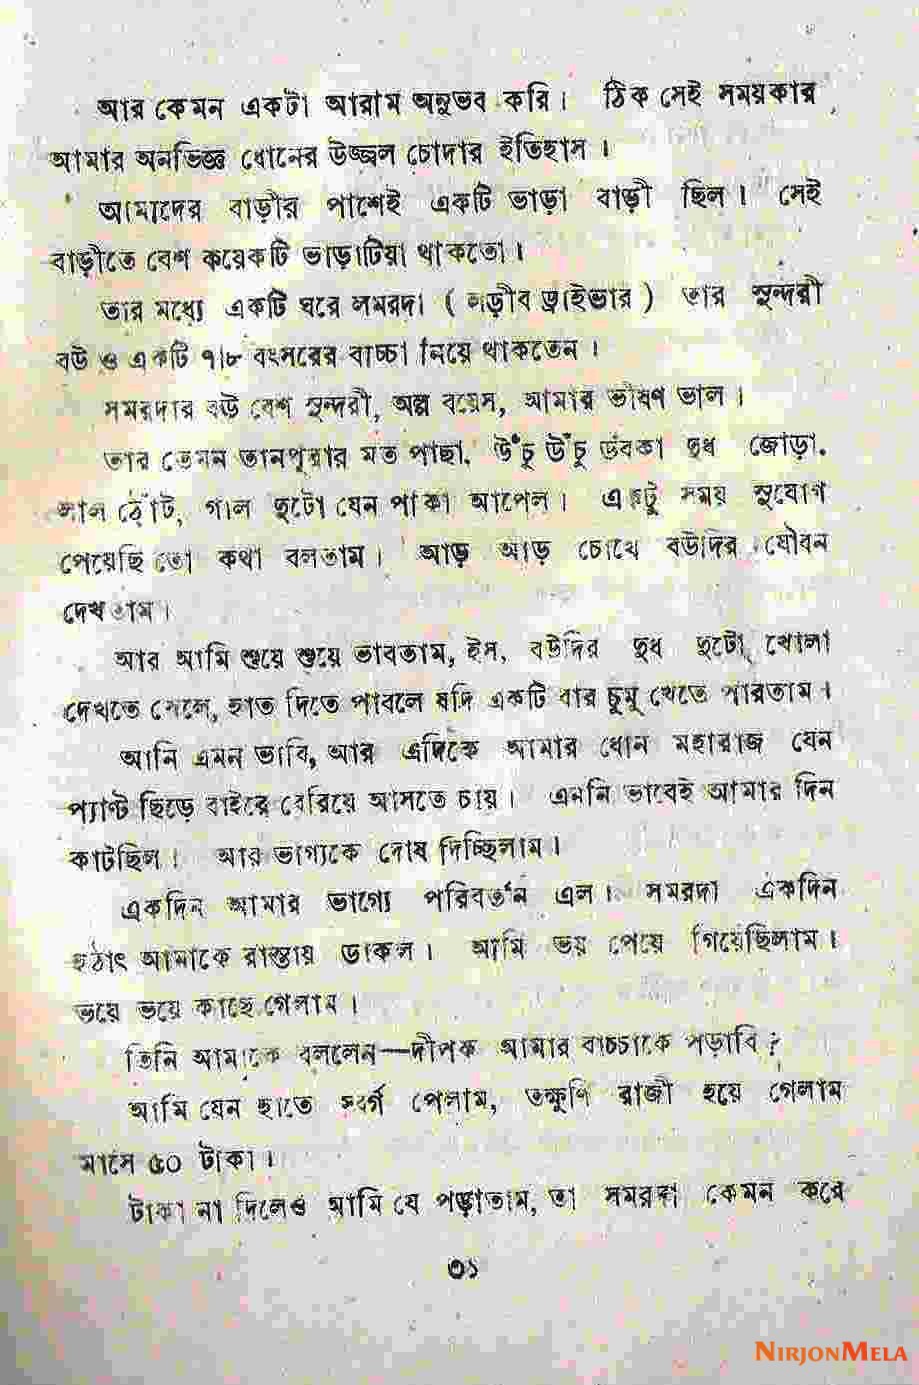 আর কেমন একটা আরাম অনুভব করি। ঠিক সেই সময়কার
আমার অনভিজ্ঞ ধোনের উজ্জ্বল চোদার ইতিহাস।
আমাদের বাড়ীর পাশেই একটি ভাড়া বাড়ী ছিল। সেই
বাড়ীতে বেশ কয়েকটি ভাড়াটিয়া থাকতো।
তার মধ্যে একটি ঘরে সমরদা ( ড্রাইভার ) তার সুন্দরী
বউ ও একটি ৭।৮ বৎসরের বাচ্চা নিয়ে থাকতেন।
সমরদার বউ বেশ সুন্দরী, অল্প বয়েস, আমার ভীষণ ভাল।
তার তেমন তানপুরার মত পাছা, উঁচু উঁচু ডবকা দুধ জোড়া,
লাল ঠোঁট, গাল দুটো যেন পাকা আপেল। একটু সময় সুযোগ
পেয়েছি তো কথা বলতাম। আড় আড় চোখে বউদির যৌবন
দেখতাম।
আর আমি শুয়ে শুয়ে ভাবতাম, ইস, বউদির দুধ দুটো খোলা
দেখতে পেলে, হাত দিতে পারলে যদি একটি বার চুমু খেতে পারতাম।
আমি এমন ভাবি, আর এদিকে আমার ধোন মহারাজ যেন
প্যান্ট ছিড়ে বাইরে বেরিয়ে আসতে চায়। এমনি ভাবেই আমার দিন
কাটছিল। আর ভাগ্যকে দোষ দিচ্ছিলাম।
একদিন আমার ভাগ্যে পরিবর্তন এল। সমরদা একদিন
হঠাৎ আমাকে রাস্তায় ডাকল। আমি ভয় পেয়ে গিয়েছিলাম।
ভয়ে ভয়ে কাছে গেলাম।
তিনি আমাকে বললেন—দীপক আমার বাচ্চাকে পড়াবি?
আমি যেন হাতে স্বর্গ পেলাম, তক্ষুণি রাজী হয়ে গেলাম
মাসে ৫০ টাকা।
টাকা না দিলেও আমি যে পড়াতাম, তা সমরদা কেমন করে
৩১
NIRJONMELA